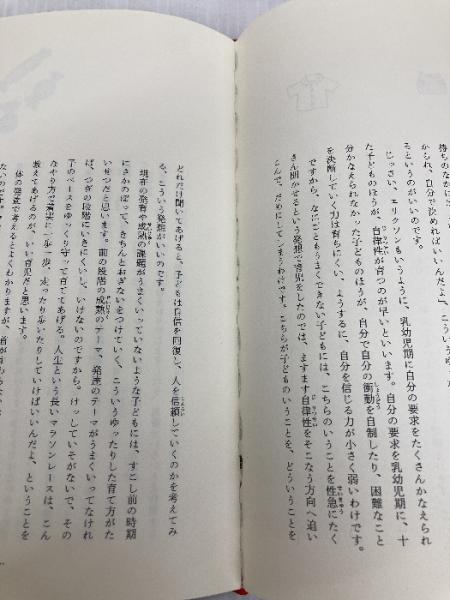 持ちのなかには
かられ、自分で決めればいいんだよ」
るというのがいいのです。
じっさい、エリクソンもいうように、乳幼児期に自分の要求をたくさんかなえられ
た子どものほうが、自律性が育つのが早いといいます。自分の要求を乳幼児期に、十
分かなえられなかった子どものほうが、自分で自分の衝動を自制したり、困難なこと
を決断していく力は育ちにくい、ようするに、自分を信じる力が小さく弱いわけです。
ですから、なにごともうまくできない子どもには、こちらのいうことを性急にたく
さん聞かせるという発想で育児をしたのでは、ますます自律性をそこなう方向へ追い
こんで、だめにしてしまうわけです。こちらが子どものいうことを、どういうことを
どれだけ聞いてあげると、子どもは自信を回復し、人を信頼していくのかを考えてみ
る、こういう発想がいいのです。
現在の発育や成熟の課題がうまくいっていないような子どもには、すこし前の時期
にさかのぼって、きちんとおぎないをつけていく、こういうゆったりした育て方がた
いせつだと思います。前の段階の成熟のテーマ、発達のテーマがうまくいってなけれ
ば、つぎの段階にいきにくいし、いけないのですから。けっしていそがないで、その
子のペースをゆっくり守って育ててあげる。人生という長いマラソンレースは、こん
なやり方で着実に一歩一歩、走ったり歩いたりしていけばいいんだよ、ということを
教えてあげるのが、いい育児だと思います。
体の発達で考えるとよくわかりますが、首が
ないのです。